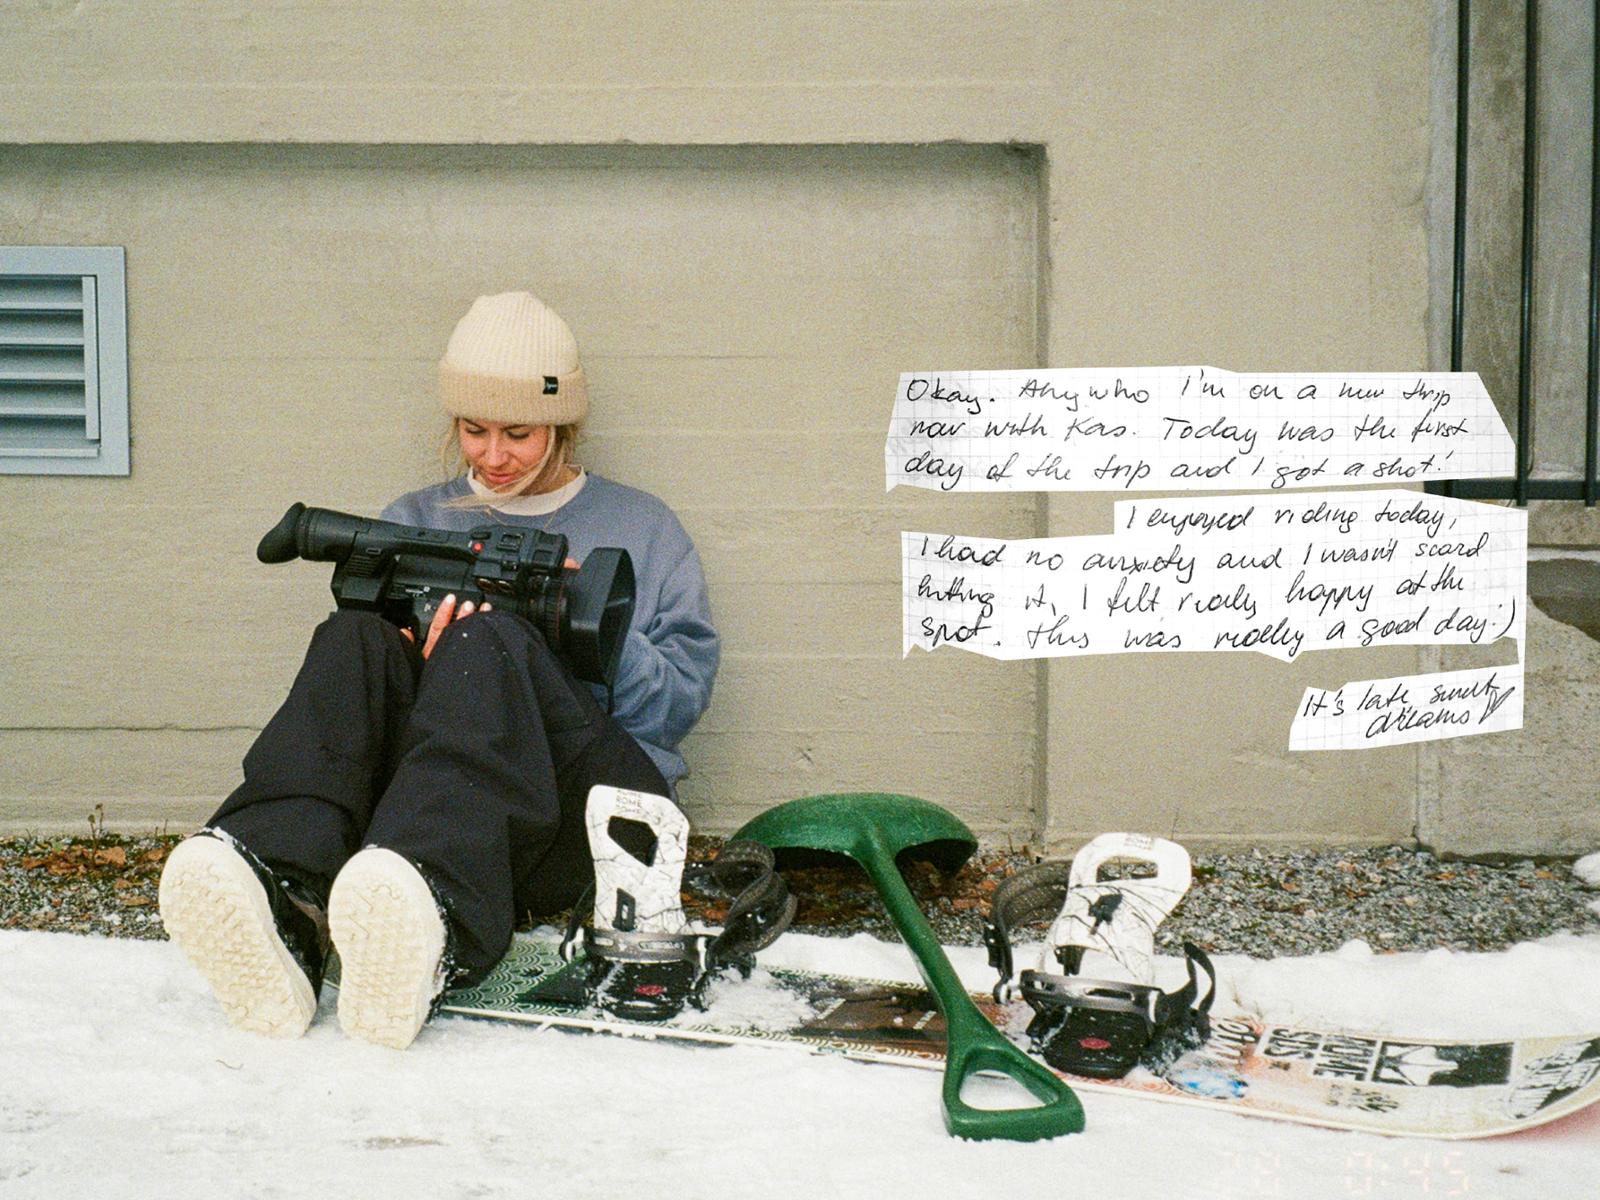 Okay. Anywho I'm on a new trip
now with Kas. Today was the first
day of the trip and I got a shot!
I enjoyed riding today,
I had no anxiety and I wasn't scard
hitting it, I felt really happy at the
spot. this was really a good day:)
It's late sweet
dreams
ROME
ROME
ROME
SDS